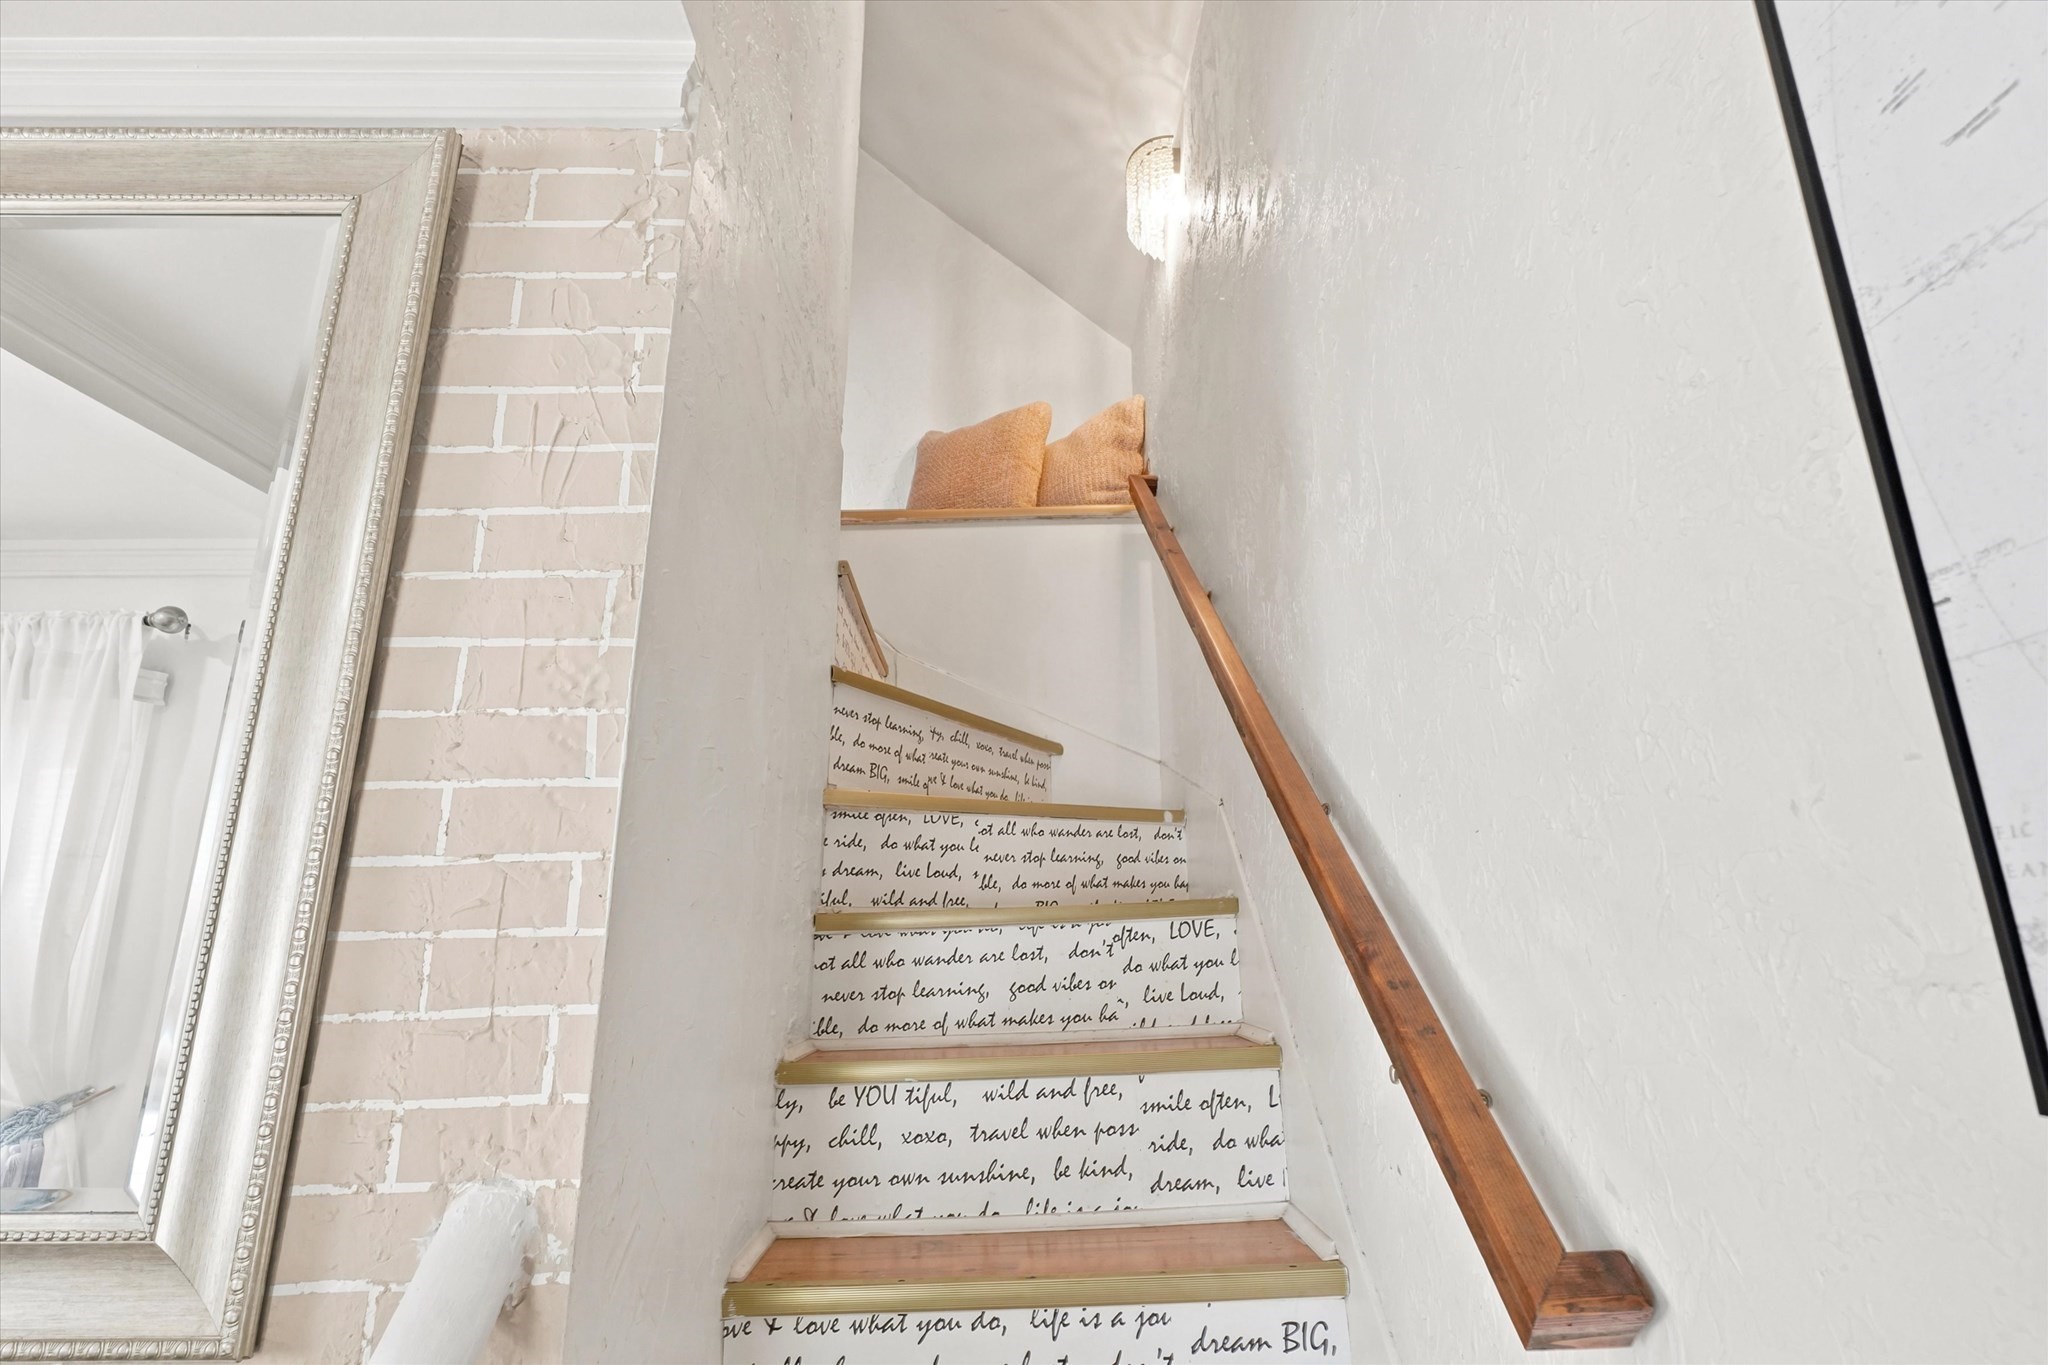 never stop learning, chill, xoxo, travel when poss
ble, do more of what reate your own sunshine, be kind,
dream BIG, smile & love what you do, life
smile often, LOVE, ot all who wander are lost, don't
e ride, do what you never stop learning, good vibes on
dream, live Loud, ble, do more of what makes you hap
iful, wild and free, BIG
often, LOVE,
not all who wander are lost, don't do what you l
never stop learning, good vibes on live Loud,
ible, do more of what makes you ha
ly, be YOU tiful, wild and free, smile often, L
ppy, chill, xoxo, travel when poss ride, do wha
reate your own sunshine, be kind, dream, live
& love what you do, life is a jou
ove & love what you do, life is a jou dream BIG,
don't
FIC
EAN